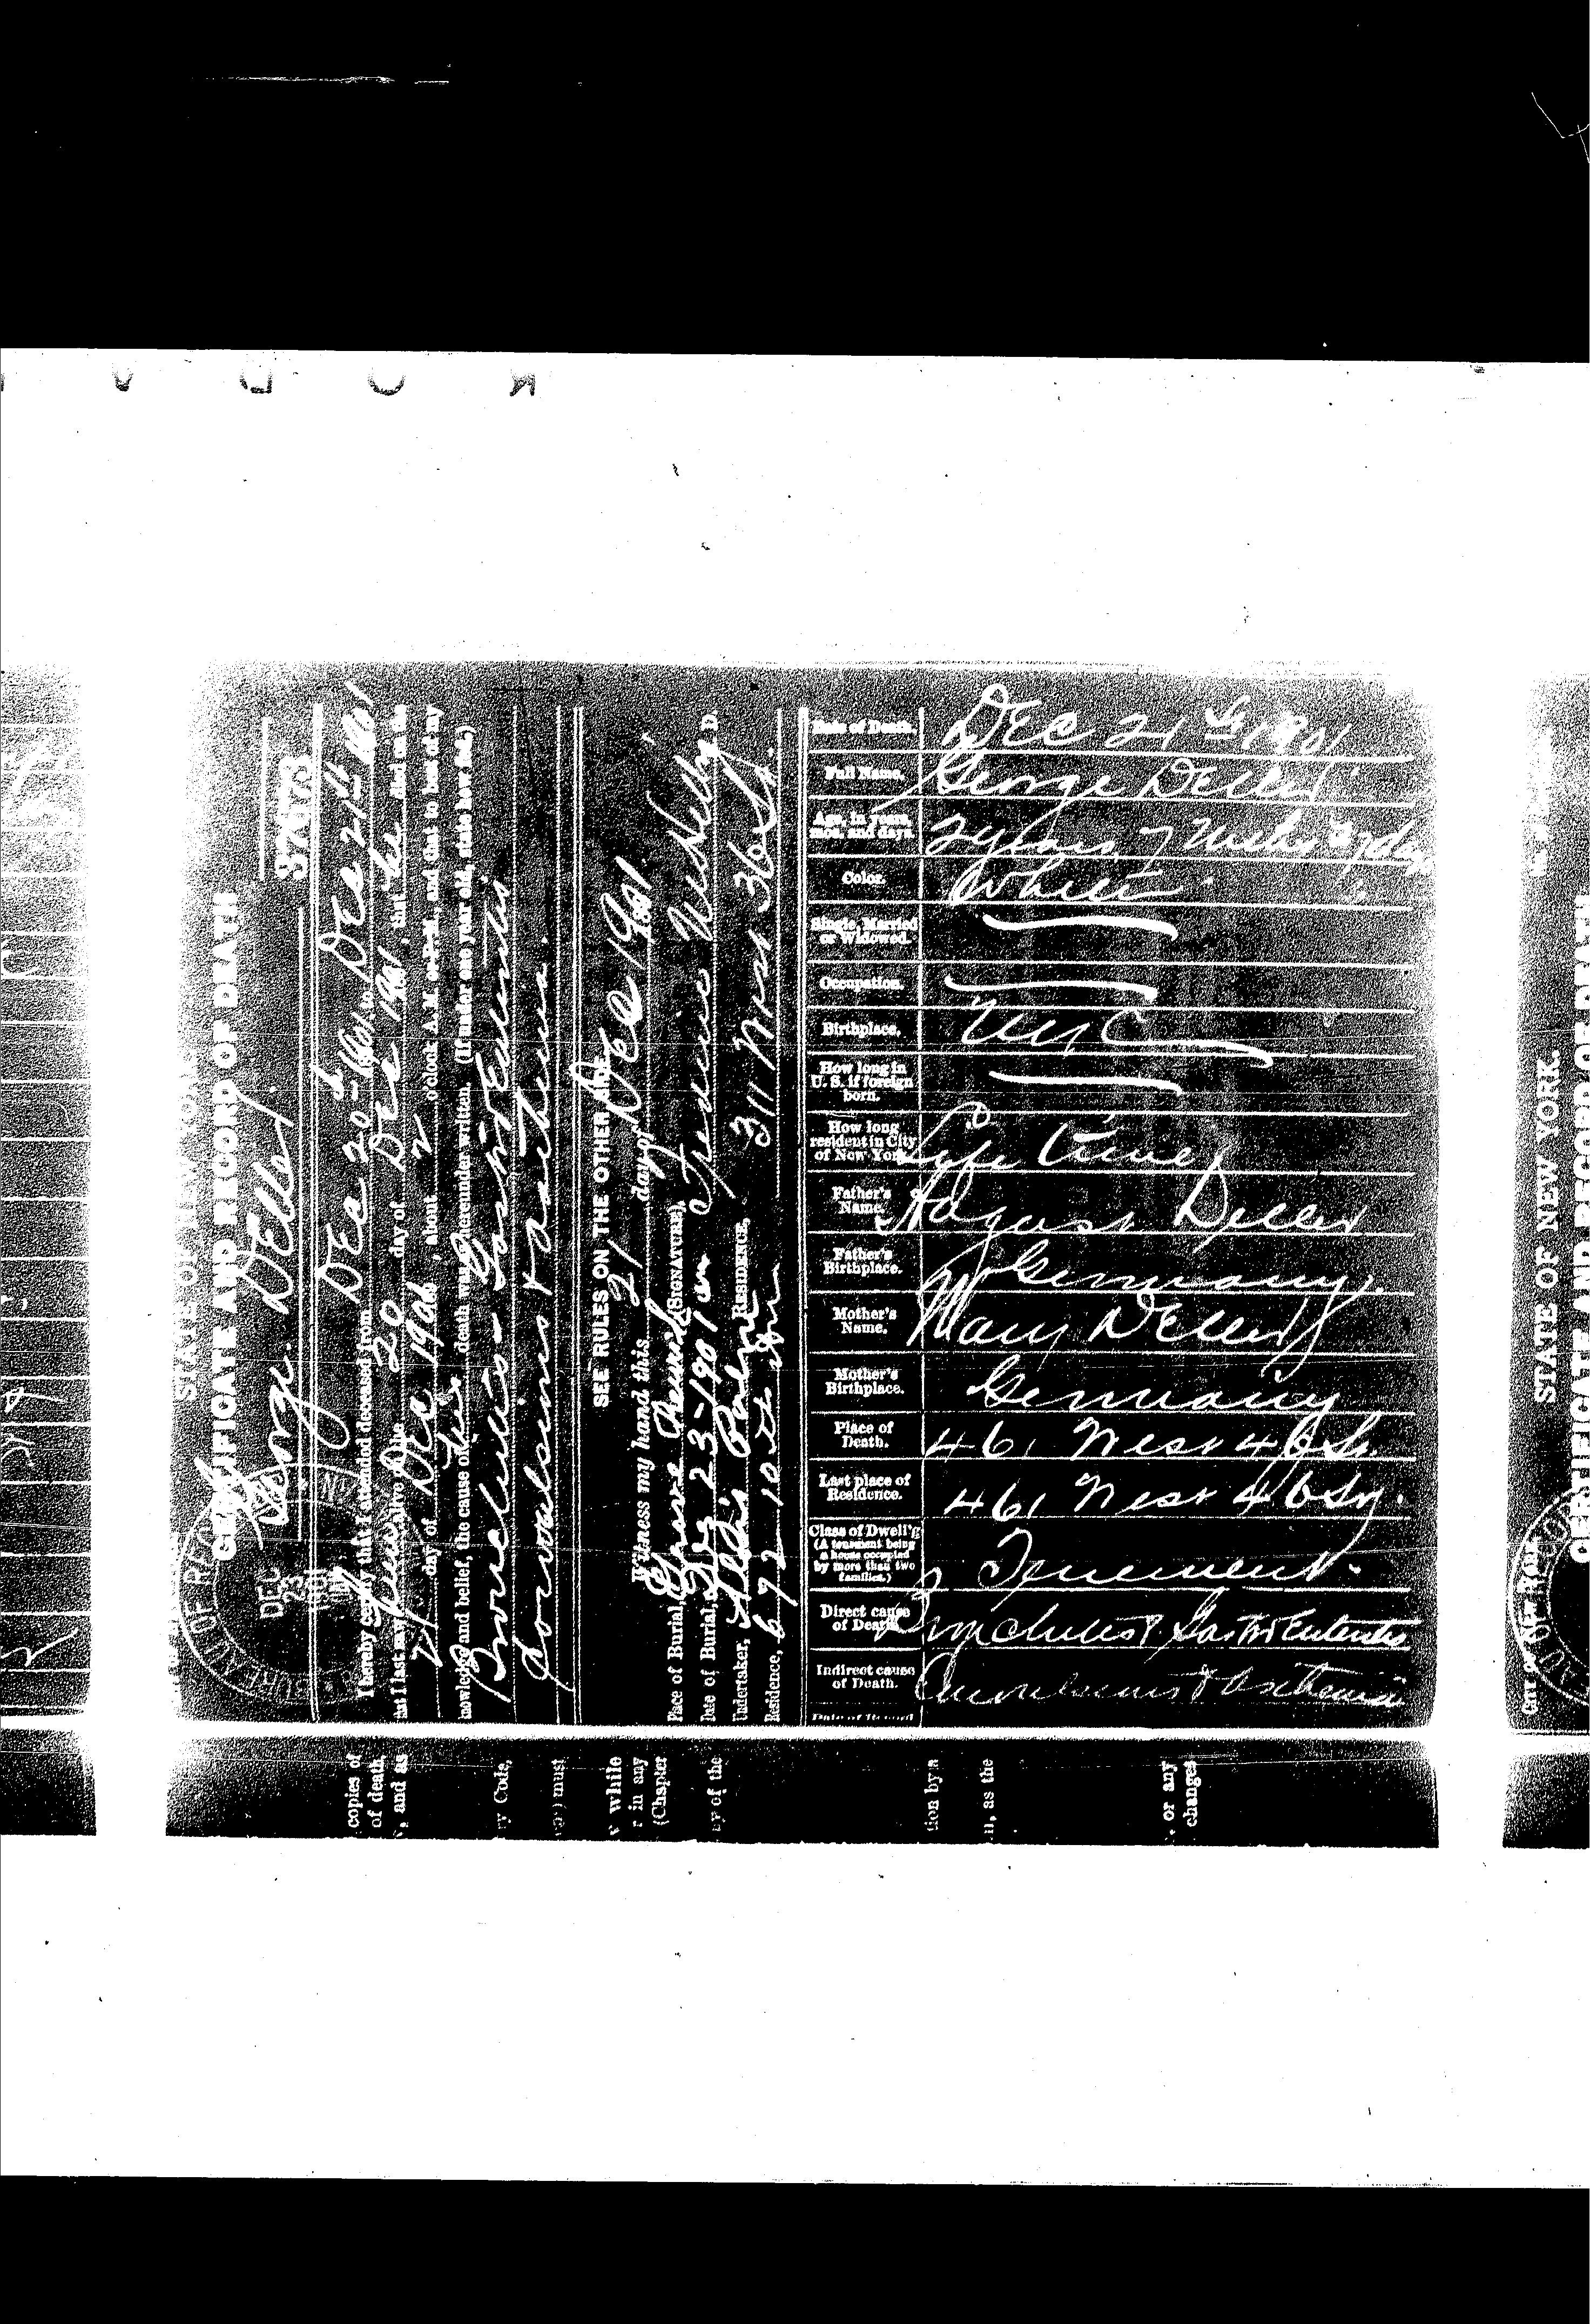 STATE OF NEW YORK.
CERTIFICATE AND RECORD OF DEATH
George Deller
37473
DEC 23 1901
I hereby certify that I attended deceased from Dec 20th 1901 to Dec 21st 1901
that I last saw alive on the 20 day of Dec 1901, that he died on the
21 day of Dec 1901, about 2 o'clock A.M. or P.M., and that to best of my
knowledge and belief, the cause of his death was as hereunder written. (If under one year old, state how fed.)
Bronchitis - Gastro Enteritis
Convulsions & Asthenia.
SEE RULES ON THE OTHER SIDE
Witness my hand this 21 day of Dec 1901
Place of Burial,
(SIGNATURE), M. D.
Date of Burial, Dec 23-1901
RESIDENCE, 311 West 36 St.
Undertaker,
Residence, 672-10th Ave
Date of Death. Dec 21st 1901
Full Name. George Deller
Age, in years, mos. and days. 2 years 7 Mths
Color. White
Single, Married or Widowed.
Occupation.
Birthplace.
How long in U. S. if foreign born.
How long resident in City of New York. Life time
Father's Name. August Deller
Father's Birthplace. Germany.
Mother's Name. Mary Deller
Mother's Birthplace. Germany
Place of Death. 461 West 46 St.
Last place of Residence. 461 West 46 St.
Class of Dwell'g (A tenement being a house occupied by more than two families.) Tenement.
Direct cause of Death. Bronchitis & Gastro Enteritis
Indirect cause of Death. Convulsions & Asthenia
Date of Record
copies of
of death
, and as
ry Code,
must
while
r in any
(Chapter
ey of the
tion by a
n, as the
, or any
changes
City of New York
STATE OF NEW YORK.
CERTIFICATE AND RECORD OF DEATH